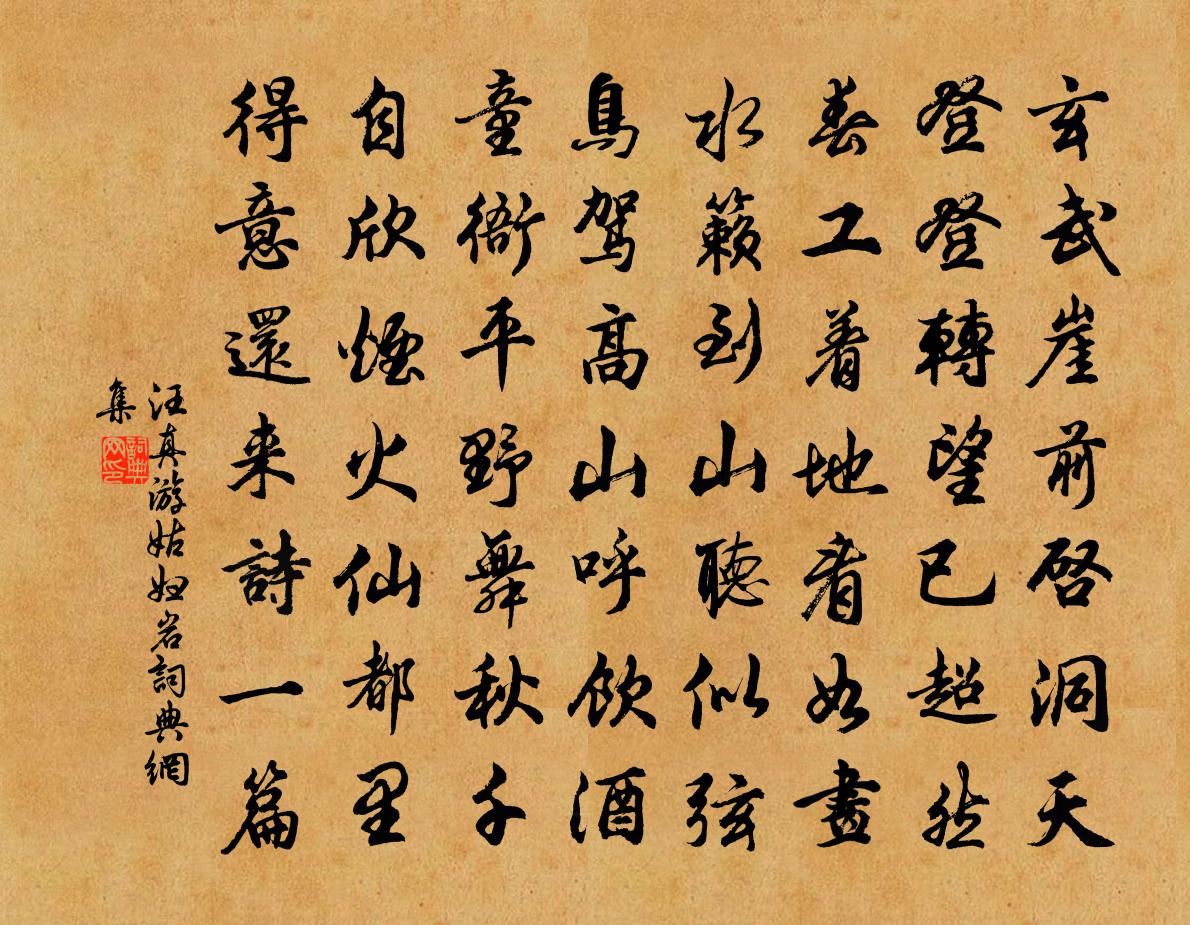 玄武崖前启洞天
登登轉望已超然
春工着地看如畫
水籟到山聽似弦
鳥駕高山呼飲酒
童衙平野舞秋千
自欣煙火仙都里
得意還来詩一篇
汪真游姑妇岩詞典網
集